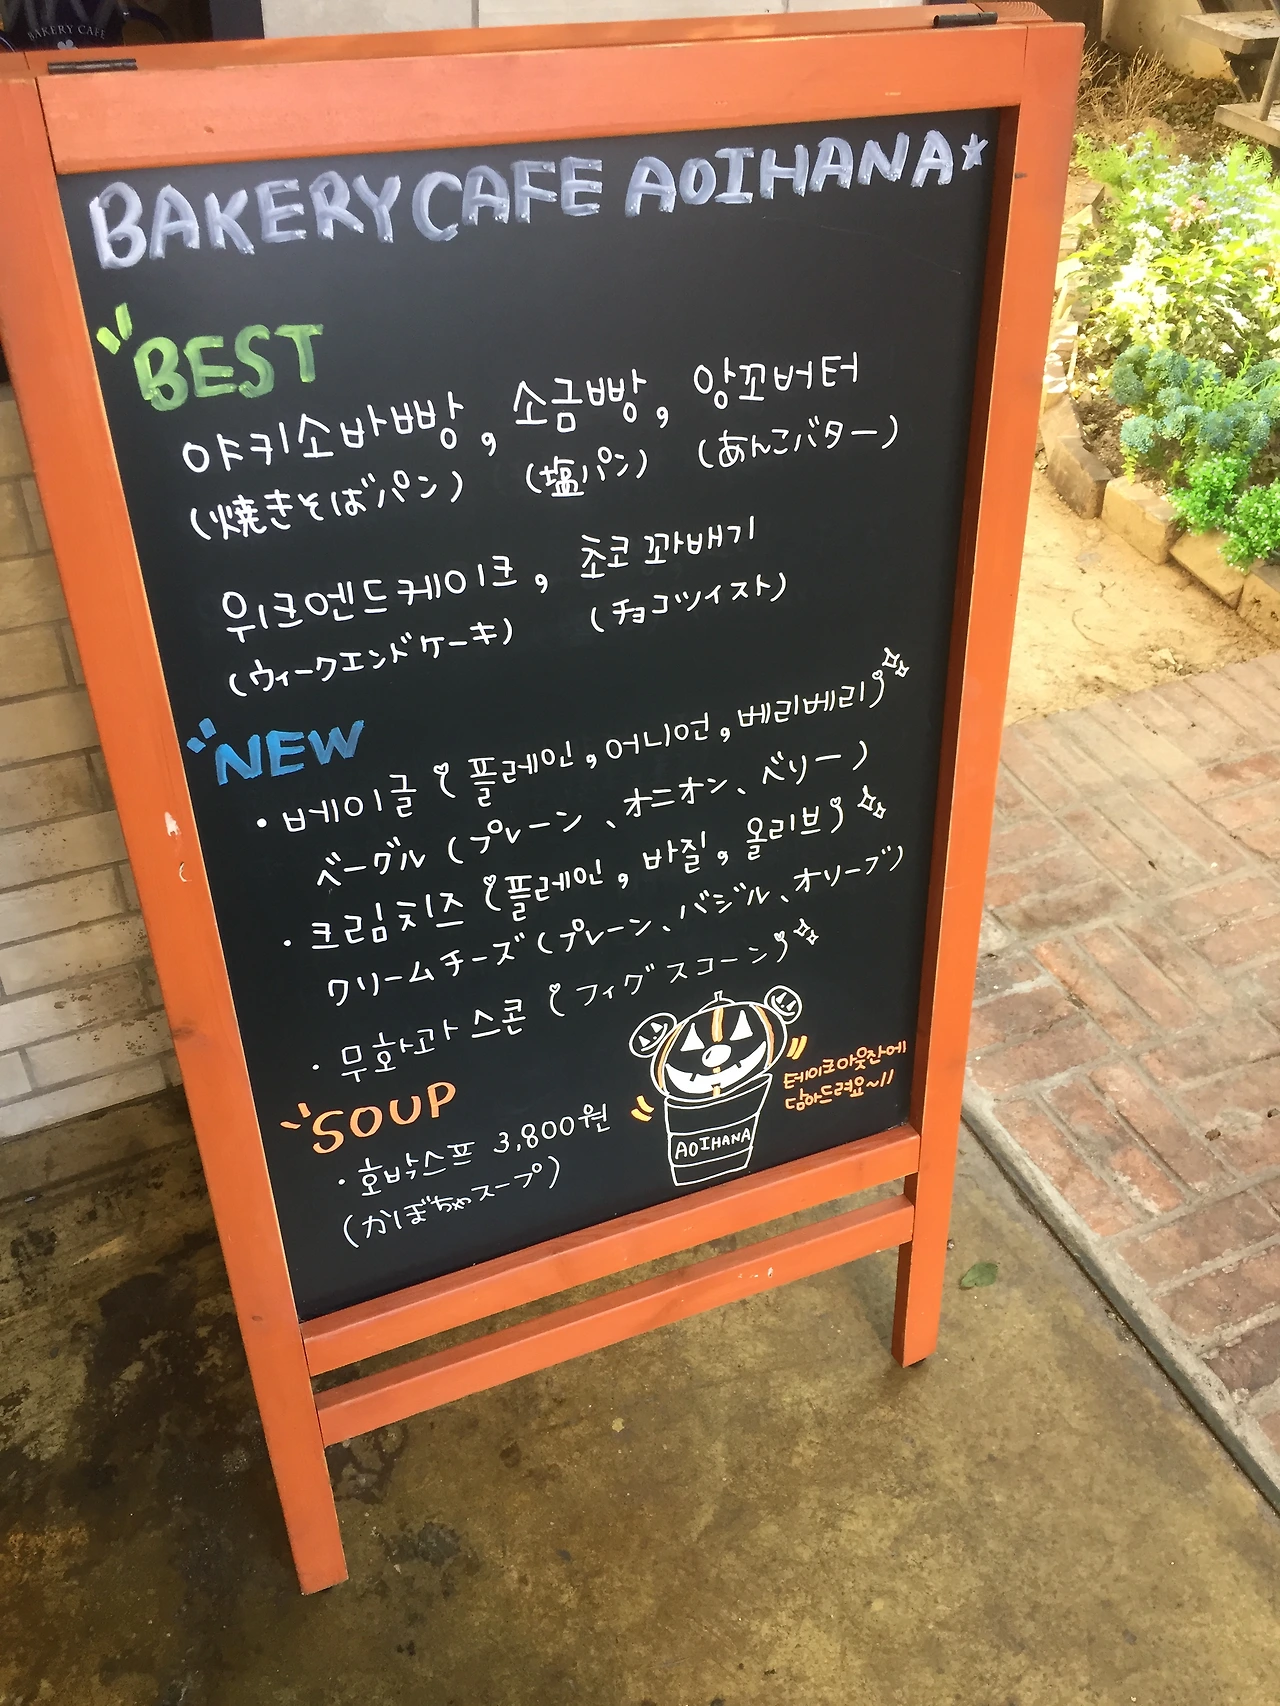 BAKERY CAFE
BAKERY CAFE AOIHANA
BEST
야키소바빵, 소금빵, 앙꼬버터
(焼きそばパン) (塩パン) (あんこバター)
위크엔드케이크, 초코 꽈배기
(ウィークエンドケーキ) (チョコツイスト)
NEW
・베이글 (플레인, 어니언, 베리베리)
ベーグル (プレーン、オニオン、ベリー)
・크림치즈 (플레인, 바질, 올리브)
クリームチーズ (プレーン、バジル、オリーブ)
・무화과 스콘 (フィグスコーン)
SOUP
・호박스프 3,800원
(かぼちゃスープ)
AOIHANA
테이크아웃잔에
담아드려요~!!